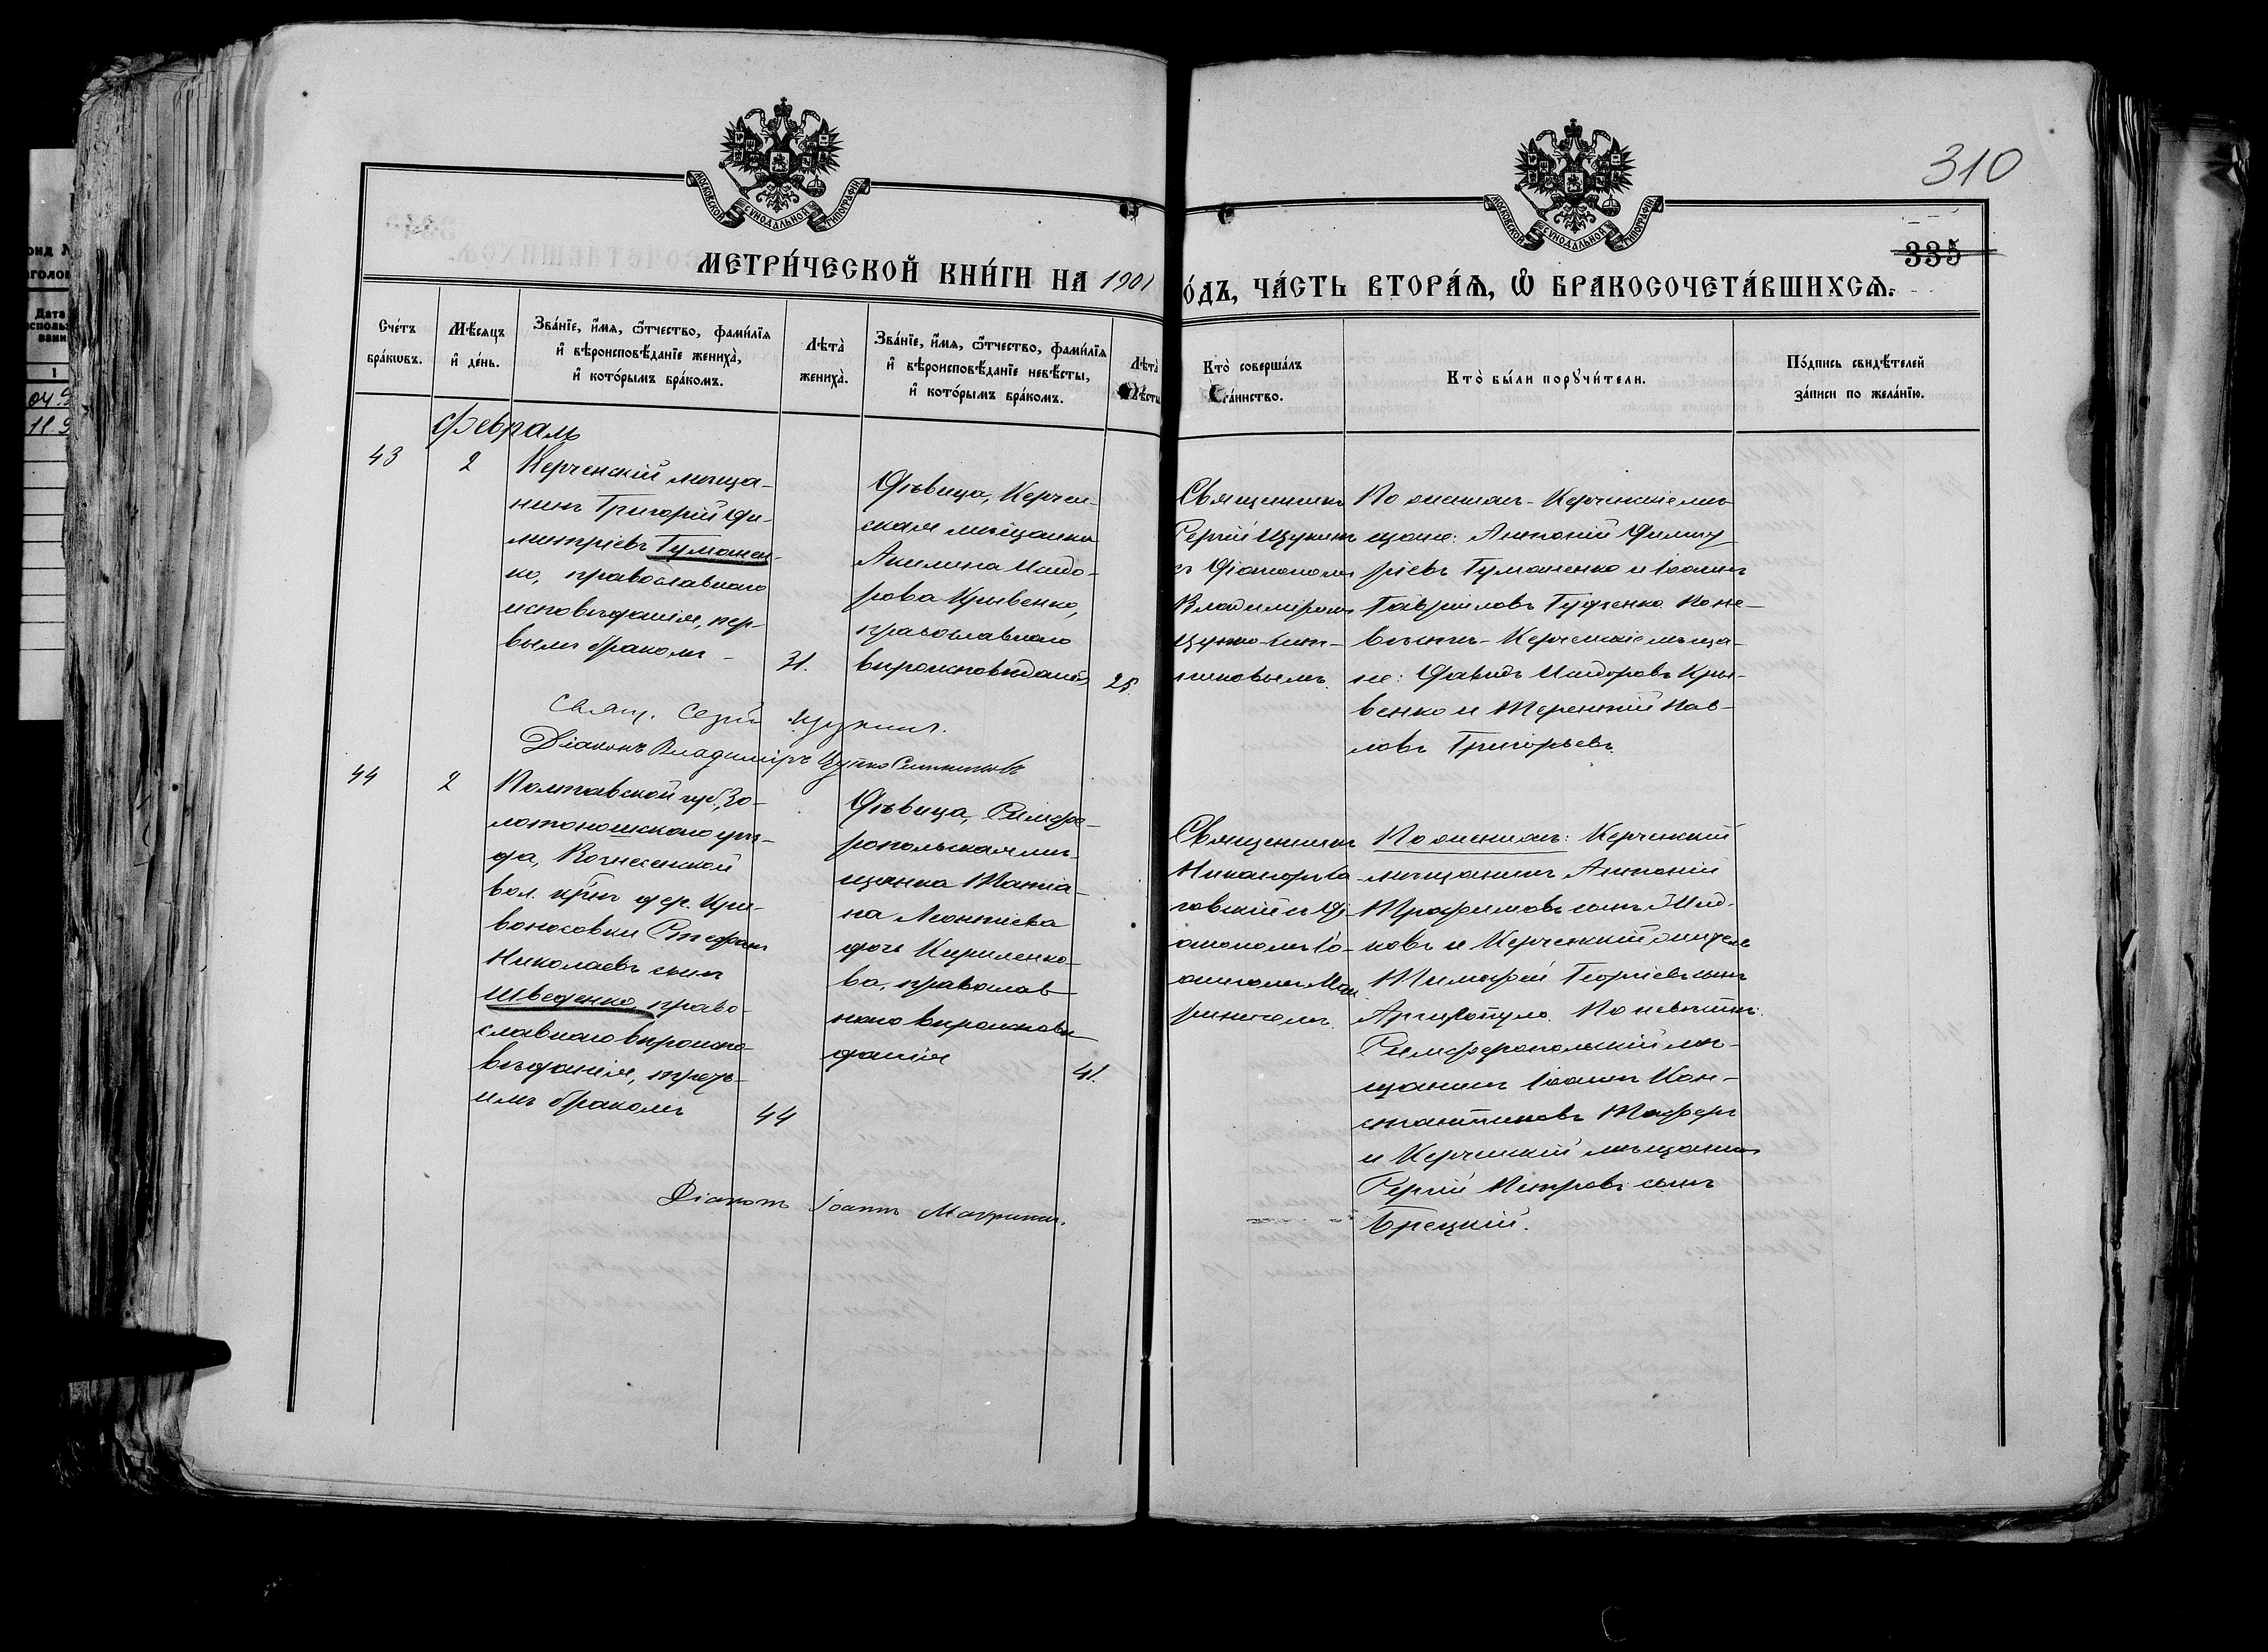 310
335
МОСКОВСКОЙ СУНОДАЛЬНОЙ ТИПОГРАФІИ
МОСКОВСКОЙ СУНОДАЛЬНОЙ ТИПОГРАФІИ
МЕТРИ́ЧЕСКОЙ КНИ́ГИ НА 1901
О́ДЪ, ЧА́СТЬ ВТОРА́Ѧ, Ѡ҆ БРАКОСОЧЕТА́ВШИХСѦ.
Сче́тъ
бра́кѡвъ.
Мѣ́сяцъ
и҆ де́нь.
Зва́нїе, и҆́мя, ѻ҆́тчество, фами́лїя
и҆ вѣроисповѣ́данїе жениха̀,
и҆ кото́рымъ бра́комъ.
Лѣта̀
жениха̀.
Зва́нїе, и҆́мя, ѻ҆́тчество, фами́лїя
и҆ вѣроисповѣ́данїе невѣ́сты,
и҆ кото́рымъ бра́комъ.
Лѣта̀
Кто̀ соверша́лъ
та́инство.
Кто̀ бы́ли порꙋчи́тели.
По́дпись свидѣ́телей
за́писи по жела́нїю.
Февраль
43
2
Керченскій мѣща-
нинъ Григорій Ди-
митріевъ Гуманен-
ко, православнаго
исповѣданія, пер-
вымъ бракомъ -
31.
Дѣвица, Керчен-
ская мѣщанка
Акилина Исидо-
рова Кривенко,
православнаго
вѣроисповѣданія
25.
Священникъ
Сергій Щукинъ
съ Діакономъ
Владиміромъ
По женихѣ - Керченскіе мѣ-
щане: Антоній Димит
ріевъ Гуманенко и Іоаннъ
Гавріиловъ Гудченко. По не-
вѣстѣ - Керченскіе мѣща-
не: Давидъ Исидоровъ Кри-
венко и Терентій Пав-
ловъ Григорьевъ
Свящ. Сергій Щукинъ.
Діаконъ Владиміръ
44
2
Полтавской губ., Зо-
лотоношскаго уѣз-
да, Вознесенской
вол. кр-нъ дер. Кри-
воносовки Стефанъ
Николаевъ сынъ
Шведенко, право-
славнаго вѣроиспо-
вѣданія, треть-
имъ бракомъ
44
Дѣвица, Симфе-
ропольская мѣ-
щанка Татіа-
на Леонтіева
дочь Кириленко-
ва, православ
наго вѣроисповѣ
данія
41.
Священникъ
Діаконъ Іоаннъ Мавринъ.
По женихѣ: Керченскій
мѣщанинъ Антоній
Трофимовъ сынъ
ковъ и Керченскій житель
Тимофей Георгіевъ сынъ
Аргиропуло. По невѣстѣ:
Симферопольскій мѣ-
щанинъ Іоаннъ Кон-
стантиновъ
и Керченскій мѣщанинъ
Сергій Петровъ сынъ